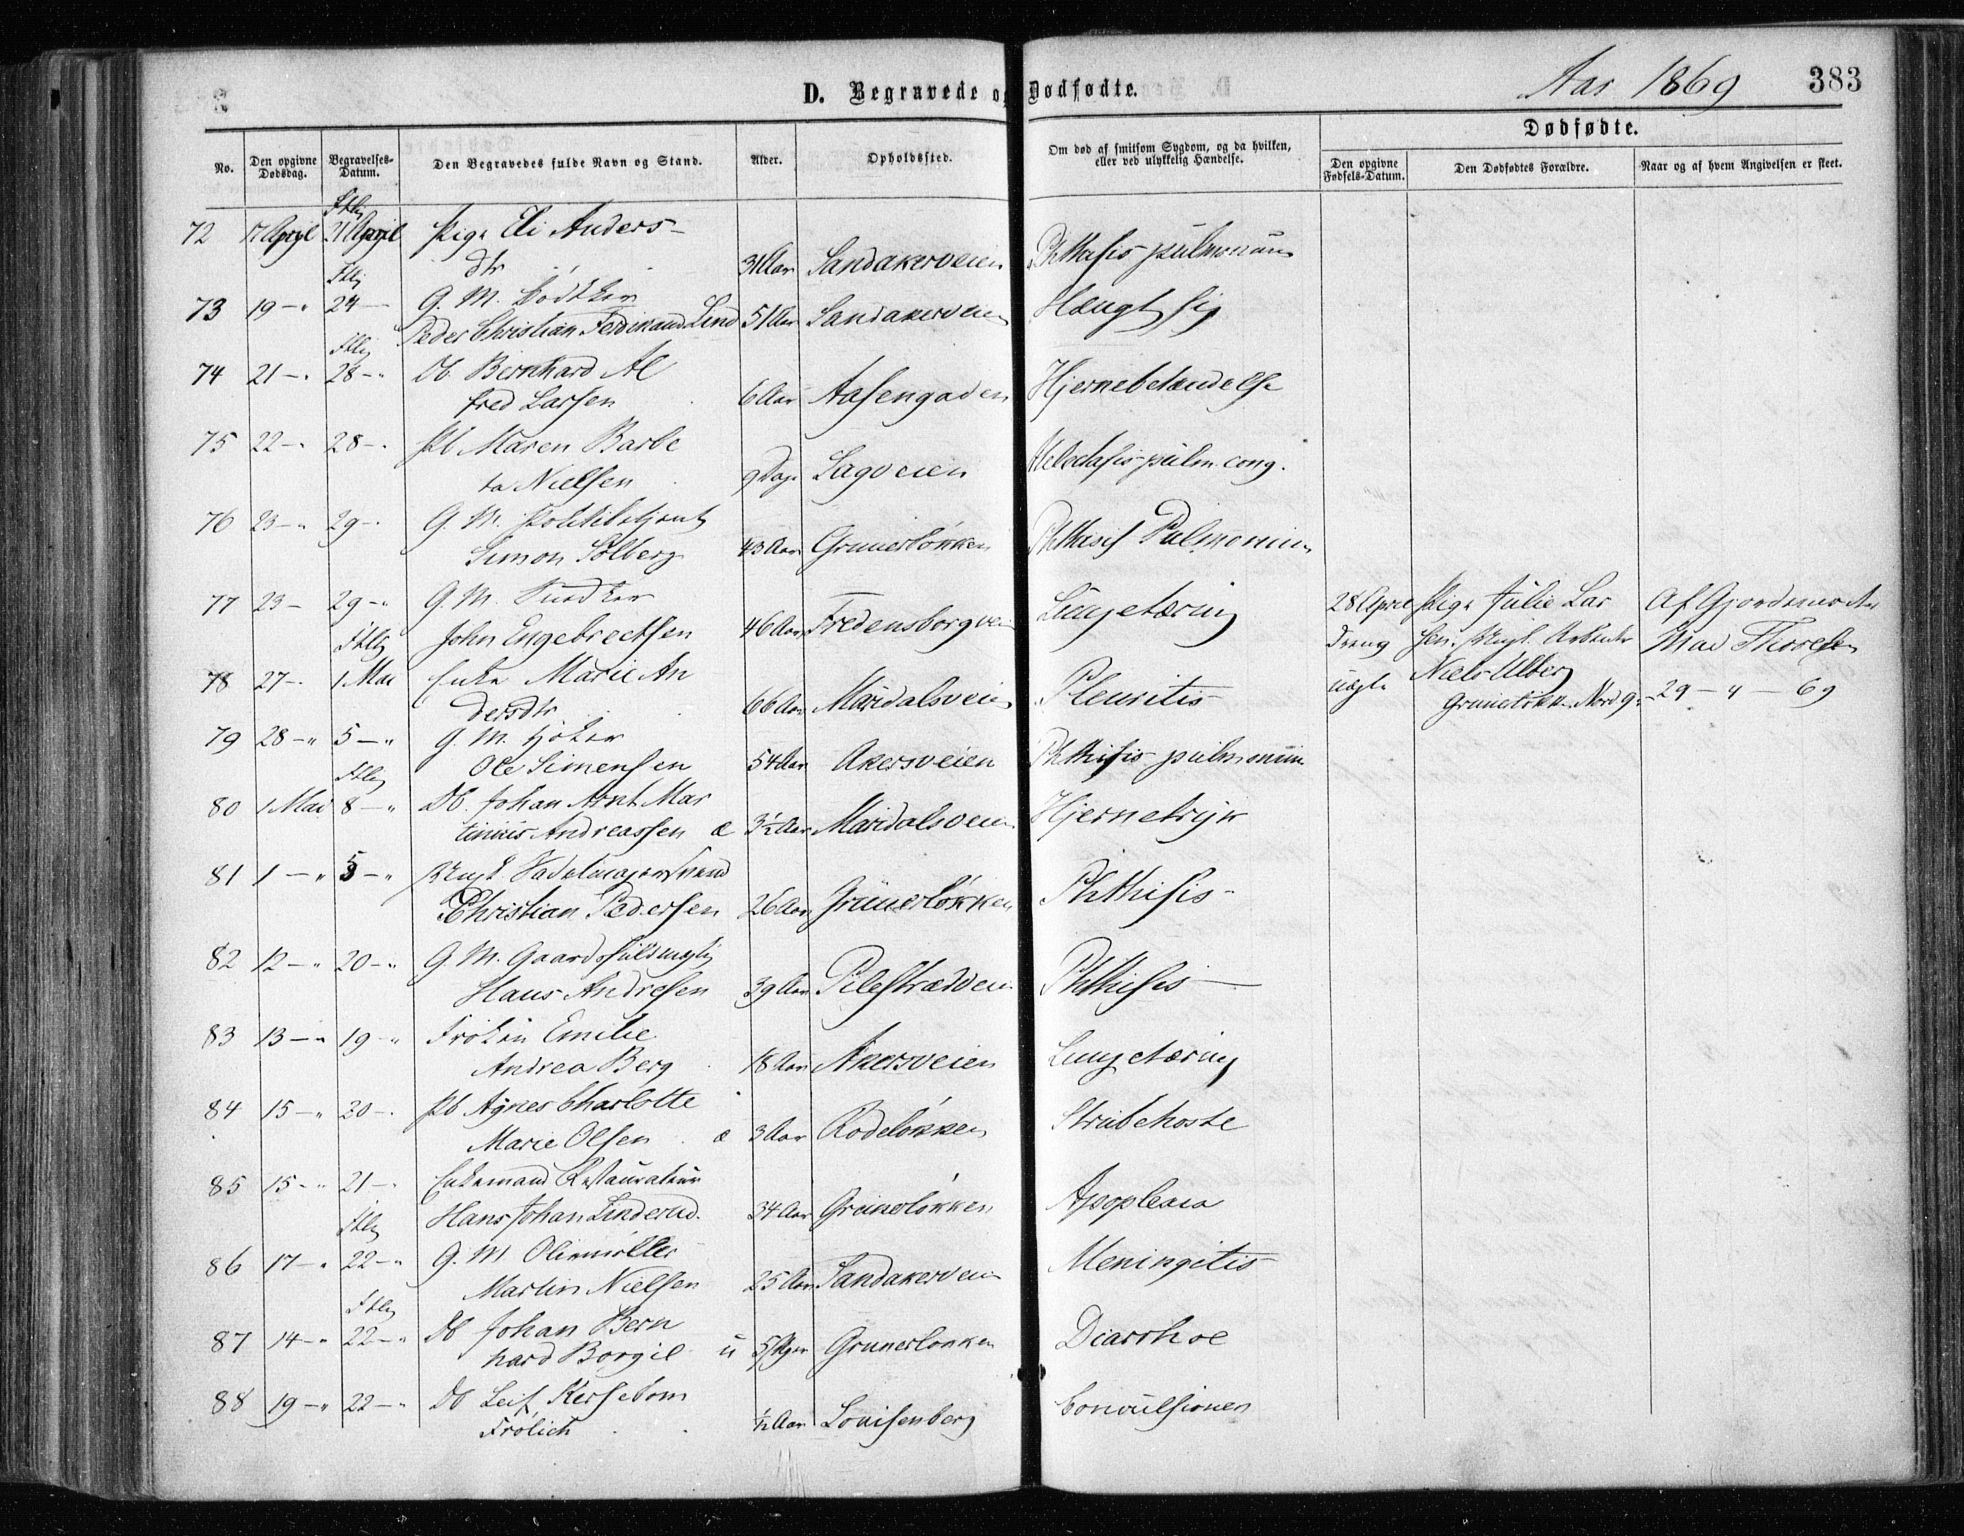 D. Begravede og Dødfødte. Aar 1869 383
Dødfødte.
No. Den opgivne Dødsdag. Begravelses-Datum. Den Begravedes fulde Navn og Stand. Alder. Opholdssted. Om død af smitsom Sygdom, og da hvilken, eller ved ulykkelig Hændelse. Den opgivne Fødsels-Datum. Den Dødfødtes Forældre. Naar og af hvem Angivelsen er skeet.
72 17 April 21 April Pige Eli Anders-
dtr 31 Aar Sandakerveien Phthisis pulmonum
73 19 - " 24 - G. M. Bødker
Peder Christian Ferdinand Lind 51 Aar Sandakerveien Hængt sig
74 21 - " 28 - " Db. Bernhard Al
fred Larsen 6 Aar Aasengaden Hjernebetændelse
75 22 - " 28 - Pb Maren Barbe
ta Nielsen 9 Dage Sagveien pulm. cong.
76 23 - " 29 - G. M. Politibetjent
Simon Solberg 43 Aar Grunerløkken Phthisis Pulmonum
77 23 - 29 - " G. M. Snedker
John Engebrectsen 46 Aar Fredensborgvei Lungetæring
28 April Pige Julie Lar Af Gjordemoder
Dreng sen. Ungk. Arbeider Mad Thoresen
uægte Niels Ulberg
Grunerløkk. Nordg. 29 - 4 - 69
78 27 - 1 Mai Enke Marie An
dersdtr 66 Aar Maridalsveien Pleuritis
79 28 - " 5 - " G. M. Høker
Ole Simensen 54 Aar Akersveien Phthisis pulmonum
80 1 Mai 8 - " Db. Johan Arnt Mar
tinius Andreassen æ 3½ Aar Maridalsveien Hjernetryk
81 1 - " 5 - " Ungk
Christian Pedersen 26 Aar Grünerløkken Phthisis -
82 12 - " 20 - " G. M. Gaardsfuldmægtig
Hans Andresen 39 Aar Pilestrædveien Phthisis -
83 13 - " 19 - " Frøken Emilie
Andrea Berg 18 Aar Akersveien Lungetæring
84 15 - " 20 - Pb Agnes Charlotte
Marie Olsen æ 3 Aar Rodeløkken Strubehoste
85 15 - " 21 - Enkemand Restauratieur
Hans Johan Linderud. 34 Aar Grunerløkken Apoplexia
86 17 - " 22 - " G. M. Oliemøller
Martin Nielsen 25 Aar Sandakerveien Meningitis
87 14 - " 22 - " Db Johan Bern
hard Borgil u 5 Uger Grunerløkken Diarrhoe
88 19 - " 22 - " Db Leif Kersebom
Frølich ½ Aar Louisenberg Convulsioner